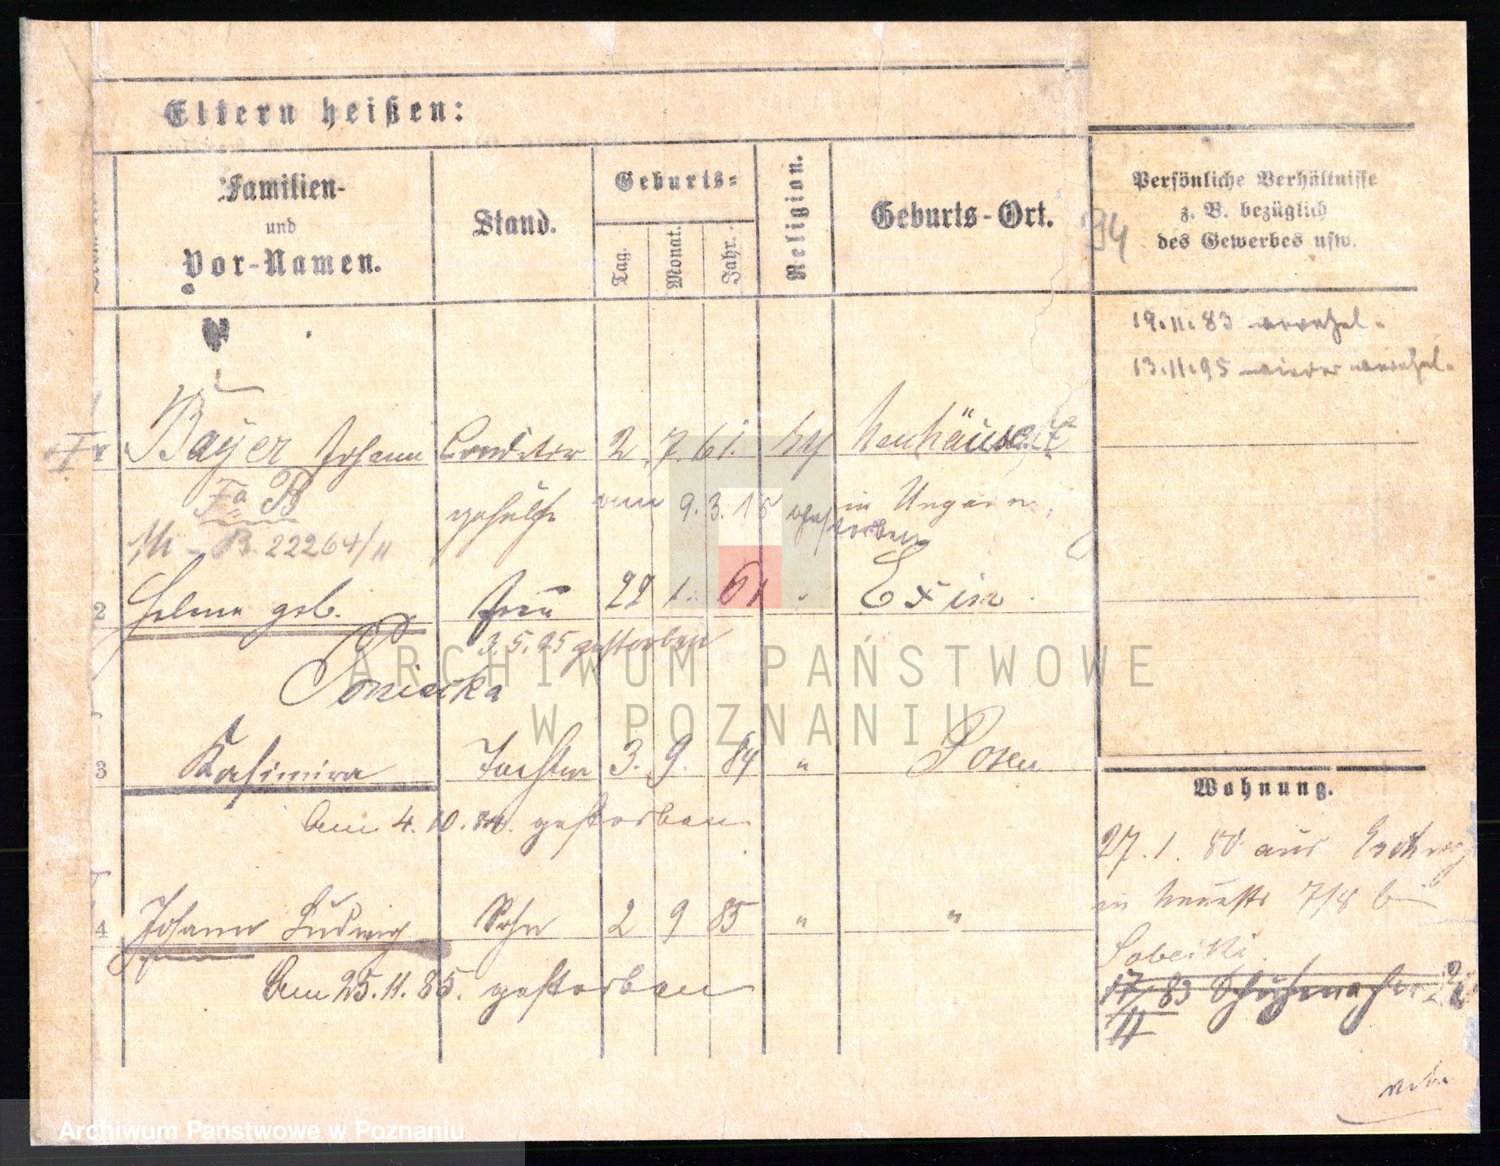 Eltern heißen:
Familien-
und
Vor-Namen.
Stand.
Geburts-
Tag.
Monat.
Jahr.
Religion.
Geburts-Ort.
Persönliche Verhältnisse
z. B. bezüglich
des Gewerbes usw.
94
19.11.83 verehel.
13.11.95 wieder verehel.
Bayer Johann Conditor 2. 7. 61. Neuhäusel
Fa B gehülfe am 9.3.15 gestorben in Ungarn.
R. 22264/11
2 Helene geb. Frau 22 1. 61 " Exin
3.5.95 gestorben
Ponieska
3 Kasimira Tochter 3. 9. 84 " Posen
Am 4.10.84. gestorben
4 Johann Ludwig Sohn 2 9 85 " "
Am 25.11.85. gestorben
Wohnung.
27.1.80 aus
in 7/8 bei
Sobeski.
17/11 83 Schuhmacher
ARCHIWUM PAŃSTWOWE
W POZNANIU
Archiwum Państwowe w Poznaniu